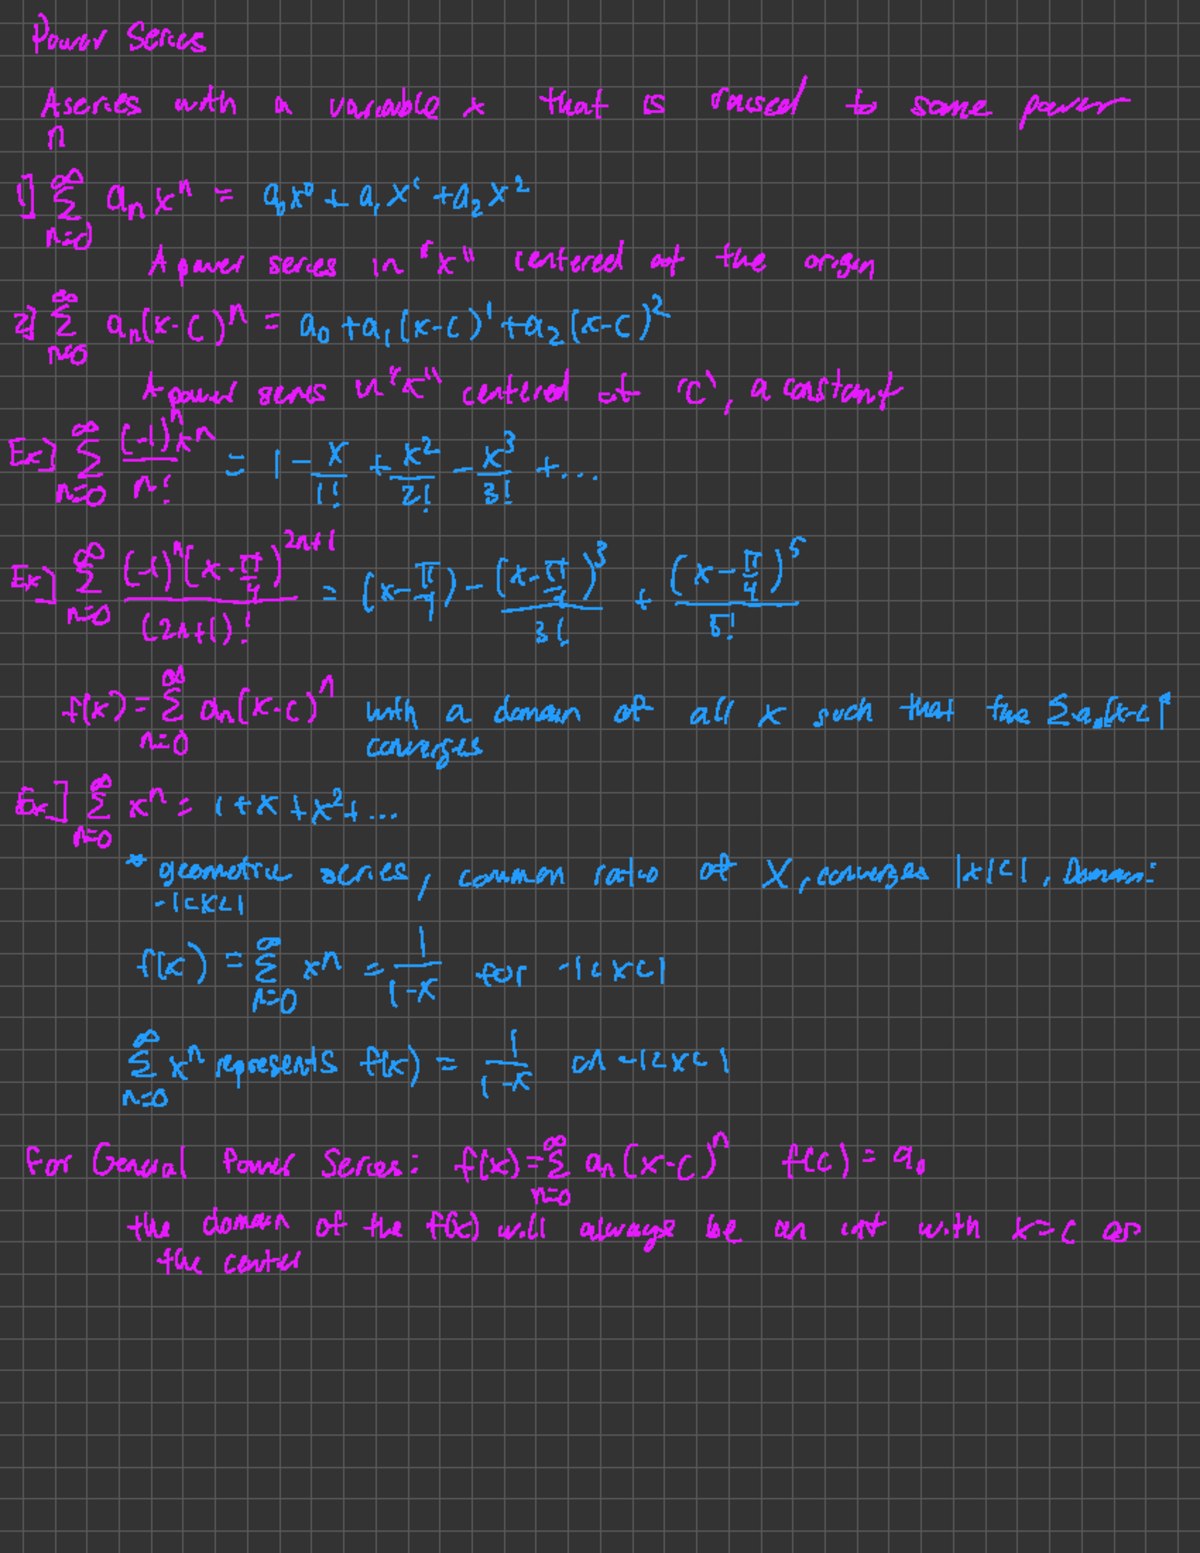 Power Series
A series with a variable x that is raised to some power
n
1] ∞∑n=0 aₙxⁿ = a₀x⁰ + a₁x¹ + a₂x²
A power series in "x" centered at the origin
2] ∞∑n=0 aₙ(x-c)ⁿ = a₀ + a₁(x-c)¹ + a₂(x-c)²
A power series in "x" centered at 'c', a constant
Ex] ∞∑n=0 (-1)ⁿxⁿ/n! = 1 - x/1! + x²/2! - x³/3! + ...
Ex] ∞∑n=0 (-1)ⁿ(x-π/4)²ⁿ⁺¹/(2n+1)! = (x-π/4) - (x-π/4)³/3! + (x-π/4)⁵/5!
f(x) = ∞∑n=0 aₙ(x-c)ⁿ with a domain of all x such that the ∑aₙ(x-c)ⁿ
converges
Ex] ∞∑n=0 xⁿ = 1 + x + x² + ...
* geometric series, common ratio of X, converges |x|<1, Domain:
-1<x<1
f(x) = ∞∑n=0 xⁿ = 1/(1-x) for -1<x<1
∞∑n=0 xⁿ represents f(x) = 1/(1-x) on -1<x<1
For General Power Series: f(x) = ∞∑n=0 aₙ(x-c)ⁿ f(c) = a₀
the domain of the f(x) will always be an int with x=c as
the center